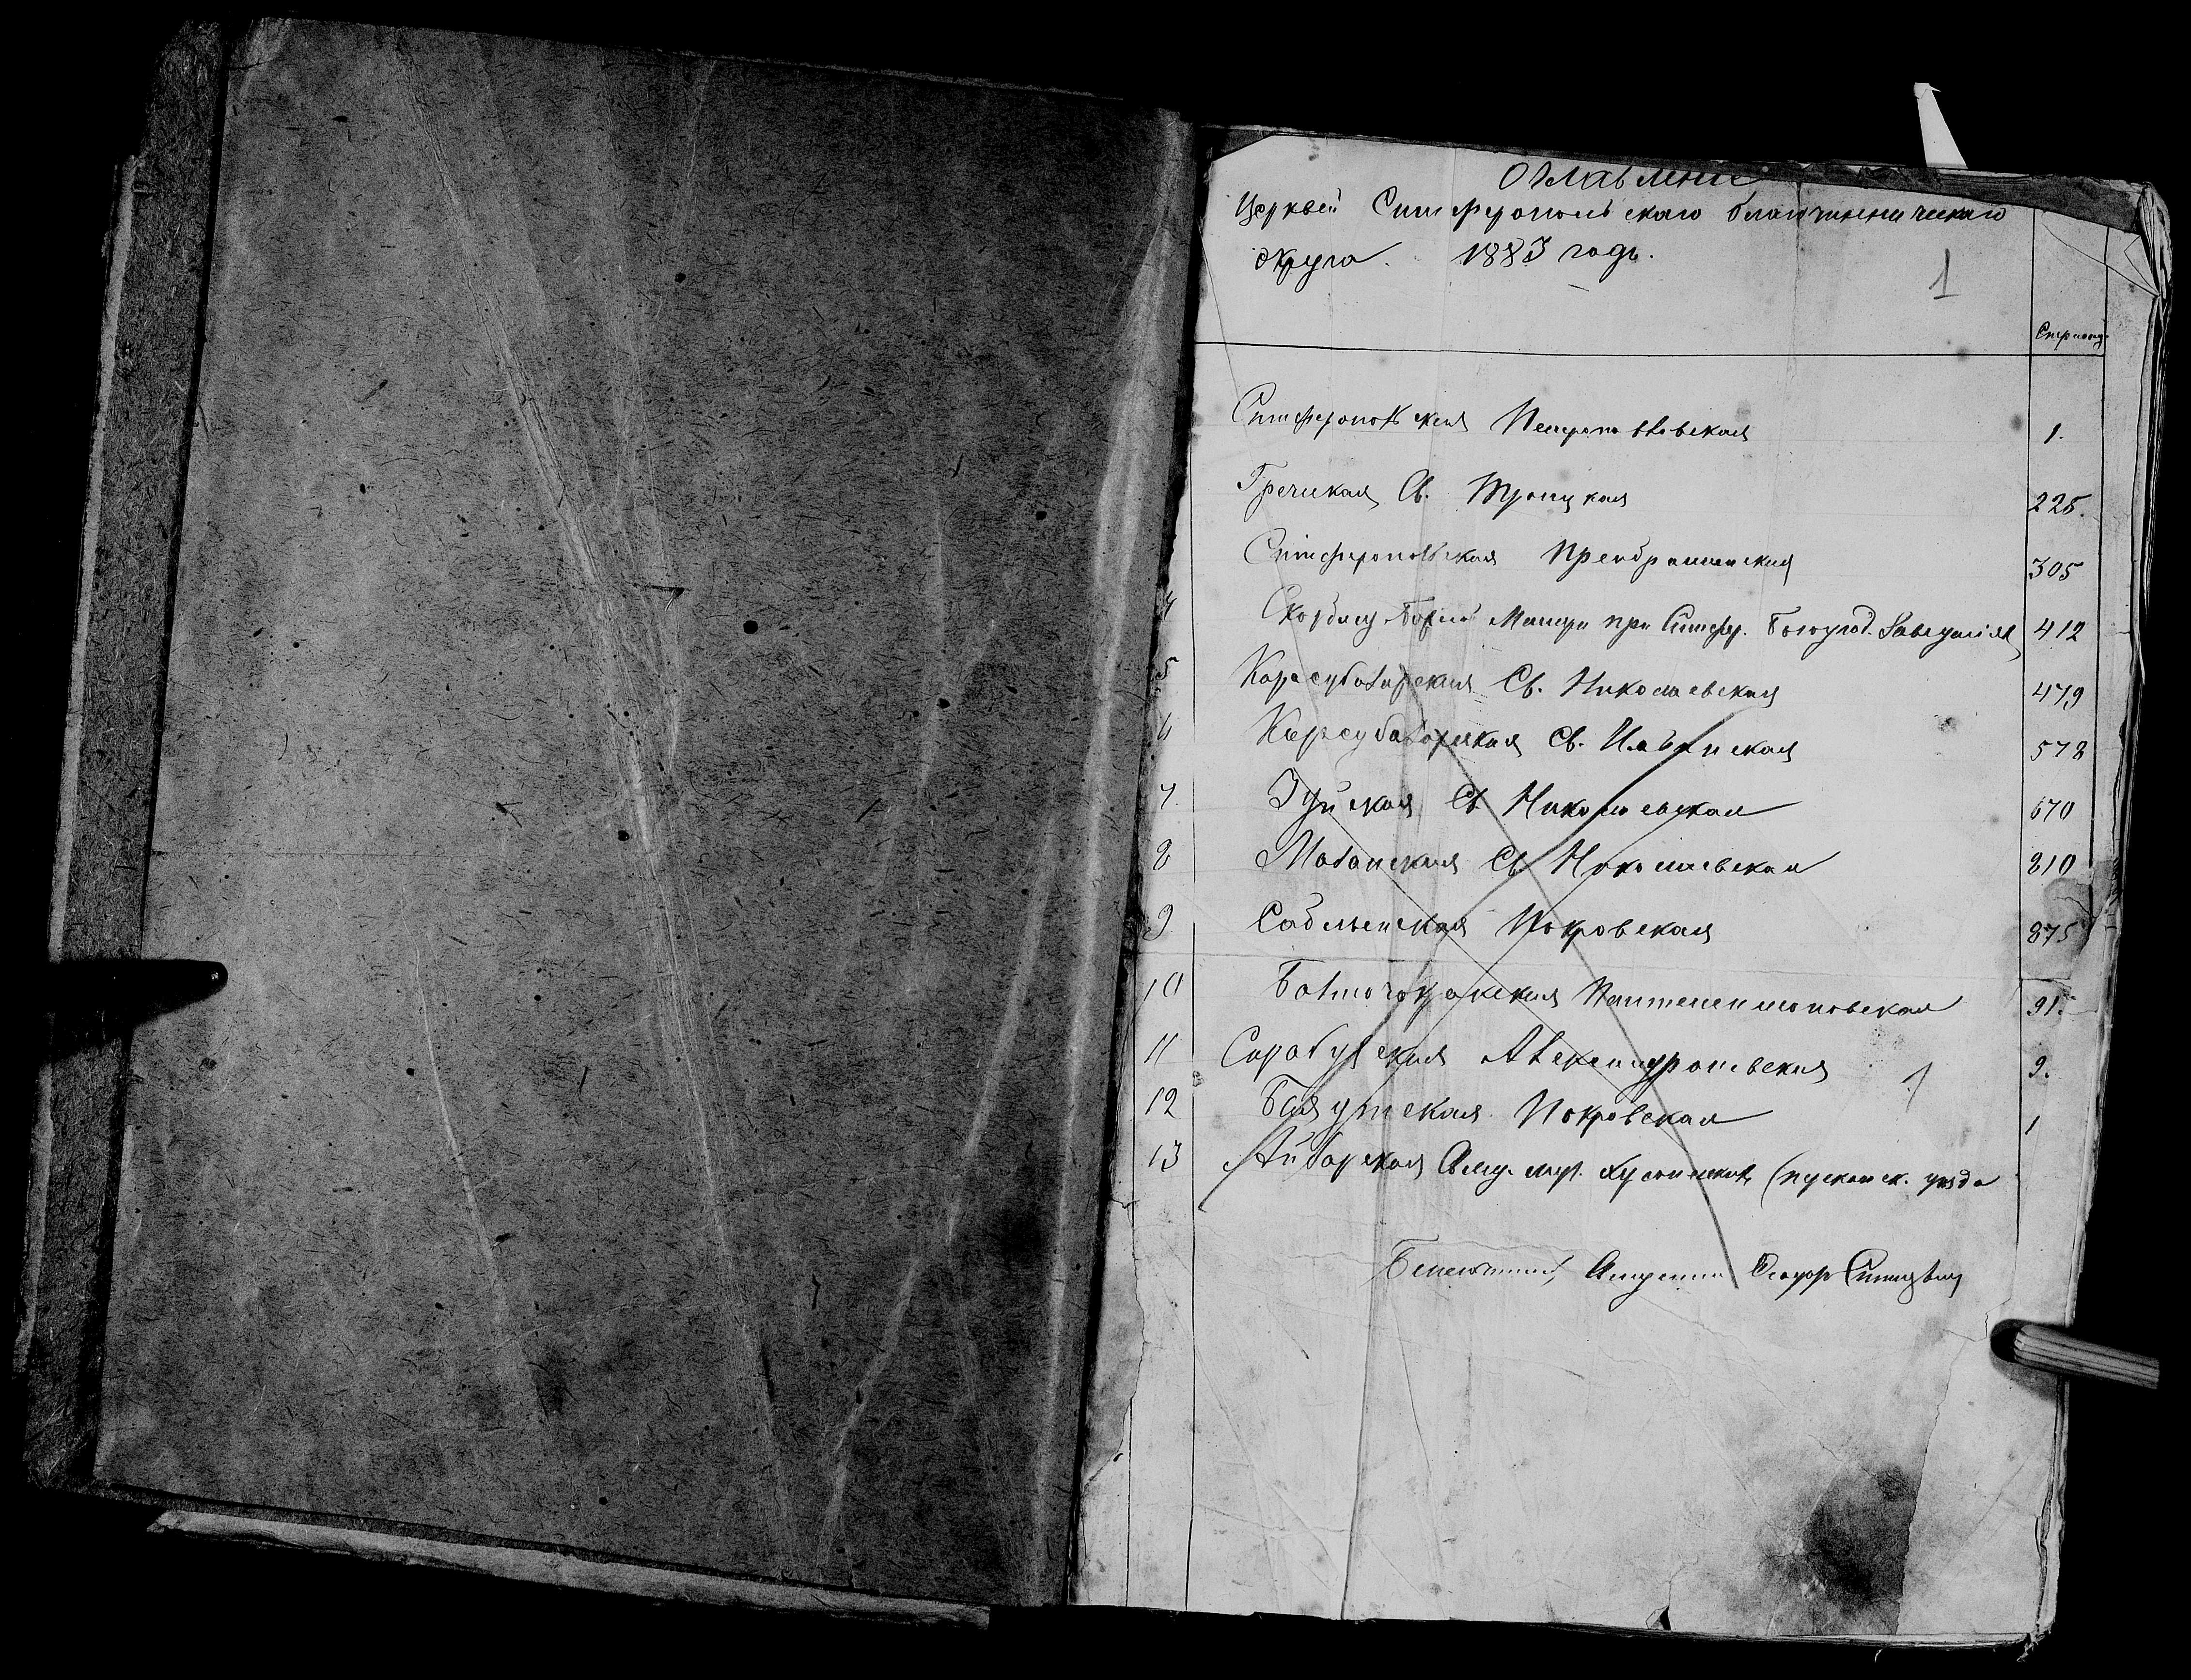 Оглавленіе
Церквей Симферопольскаго благочинническаго
округа. 1883 годъ.
1
Страниц.
Симферопольская Петропавловская 1.
Греческая Св. Троицкая 225.
Симферопольская Преображенская 305
4 Скорбящ. Божіей Матери при Симфер. Богоугод. Заведеніях 412
5 Карасубазарская Св. Николаевская 479
6 Карасубазарская Св. Ильинская 578
7 Зуйская Св Николаевская 670
8 Мазанская Св. Николаевская 810
9 Саблынская Покровская 875
10 Балточокракская Пантелеимоновская 91.
11 Сарабузская Александроневская 9.
12 Баяутская Покровская 1
1
13 Айбарская
Благочинный,